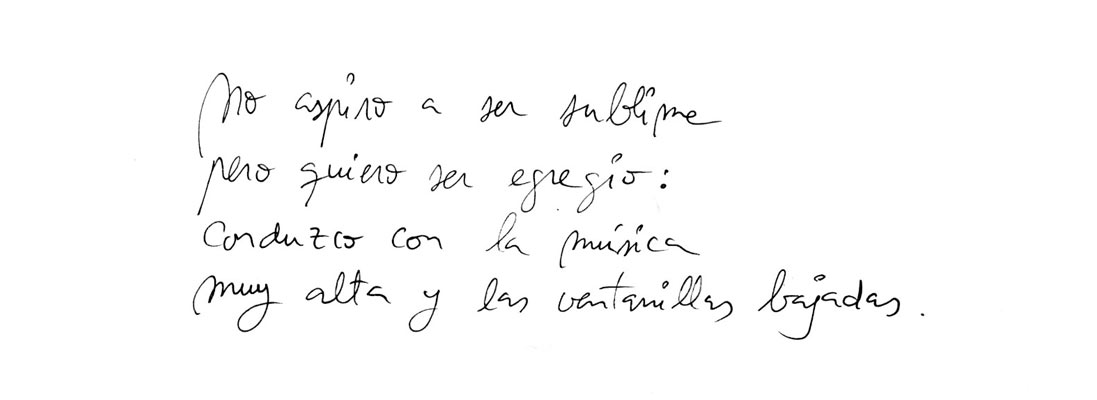 No aspiro a ser sublime
pero quiero ser egregio:
conduzco con la música
muy alta y las ventanillas bajadas.